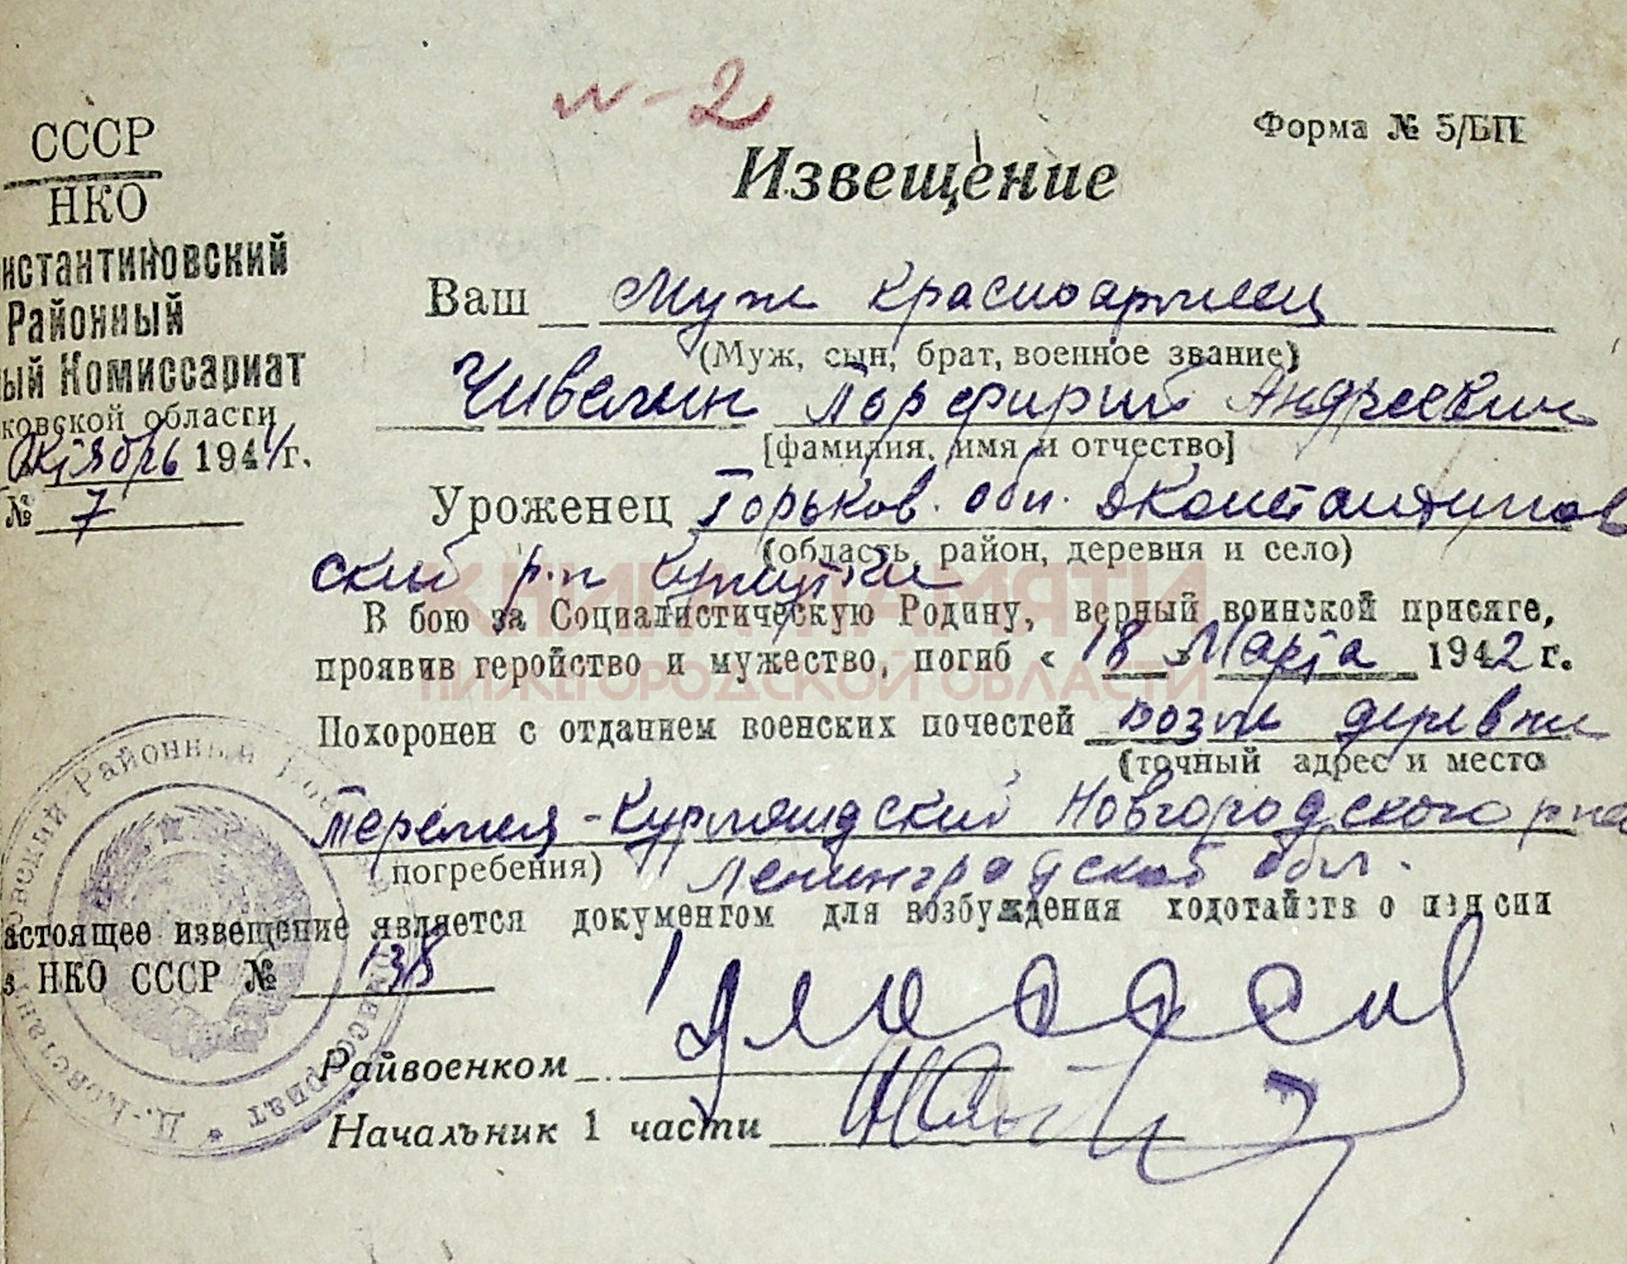 и-2
Форма № 5/БП
СССР
НКО
нстантиновский
Районный
ый Комиссариат
ковской области
Октябрь 1944 г.
№ 7
Извещение
Ваш Муж красноармеец
(Муж, сын, брат, военное звание)
Чивелин Порфирий Андреевич
[фамилия, имя и отчество]
Уроженец Горьков. обл. Дконстантинов
(область, район, деревня и село)
ский р-н
В бою за Социалистическую Родину, верный воинской присяге,
проявив геройство и мужество, погиб « 18 » Марта 1942 г.
Похоронен с отданием военских почестей возле деревни
(точный адрес и место
Новгородского р-на
погребения) Ленинградской обл.
астоящее извещение является документом для возбуждения ходотайств о пенсии
з НКО СССР № 138
Райвоенком
Начальник 1 части
КНИГА ПАМЯТИ
НИЖЕГОРОДСКОЙ ОБЛАСТИ